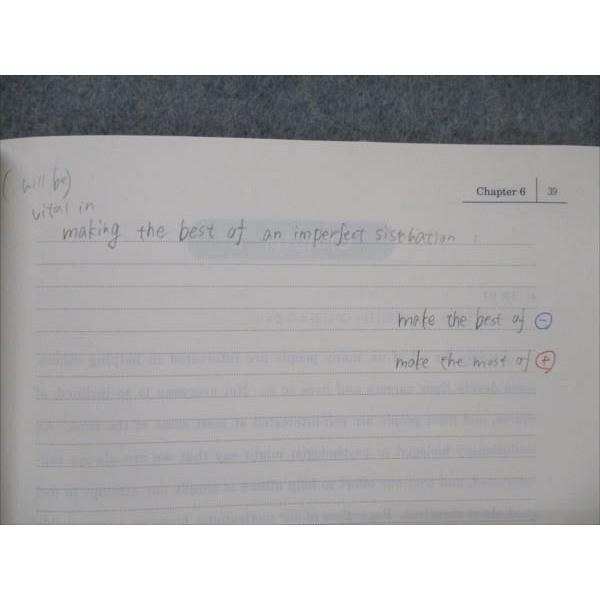 Chapter 6 39
(will be)
vital in
making the best of an imperfect sistuation.
make the best of ⊖
make the most of ⊕